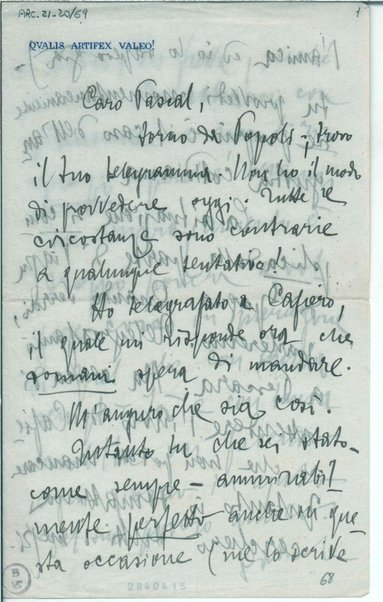 ARC. 21-20/69
1
QVALIS ARTIFEX VALEO!
Caro Pascal,
torno da Popoli, trovo
il tuo telegramma. Non ho il modo
di provvedere oggi. Tutte le
circostanze sono contrarie
a qualunque tentativo!
Ho telegrafato a Cafiero,
il quale mi risponde ora che
domani spera di mandare.
M'auguro che sia così.
Intanto tu, che sei stato -
come sempre - ammirabil-
mente perfetto anche in que-
sta occasione (me lo scrive
68
2840415